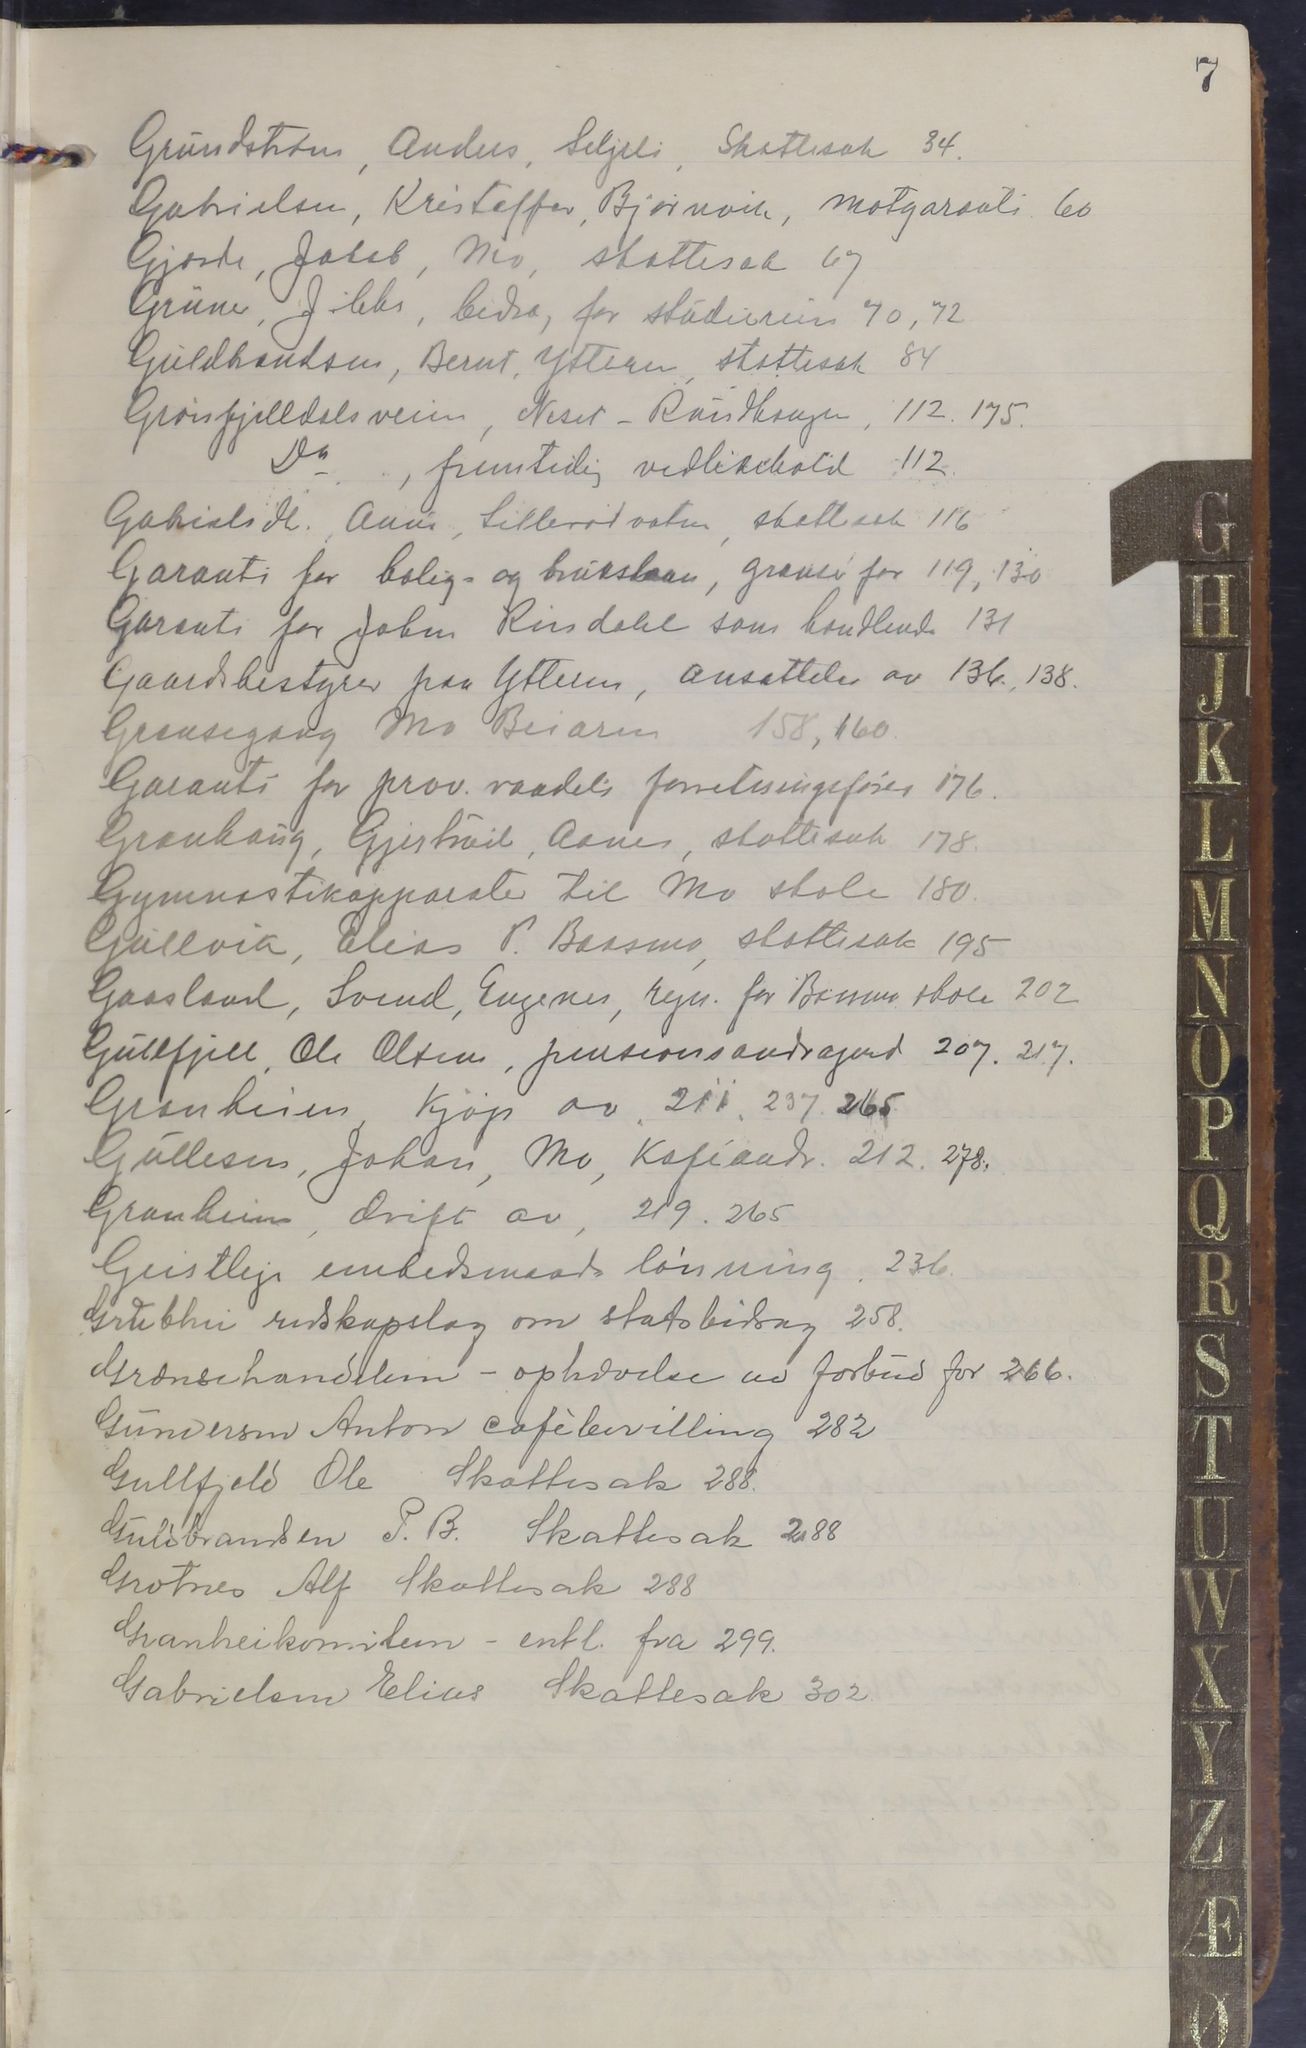 7
Grundstrøm, Anders, Seljeli, Skattesak 34.
Gabrielsen, Kristoffer, Bjørnvik, motgaranti 60
Gjærde, Jakob, Mo, skattesak 67
Grüner, bidrag for studiereise 70, 72
Guldbrandsen, Bernt, Ytteren, skattesak 84
Grønfjelldalsveien, Neset - Raudhaugen, 112. 175.
Do , fremtidig vedlikehold 112
Gabrielsdt., Anne, skattesak 116
Garanti for bolig- og bruksslaan, grense for 119, 130
Garanti for Johan Rinsdahl som handlende 131
Gaardsbestyrer paa Ytteren, ansættelse av 136, 138.
Grensegang Mo Beiaren 158, 160.
Garanti for prov. raadets forretningsfører 176.
Granhaug, Gjertrud, Aanes, skattesak 178.
Gymnastikapparater til Mo skole 180.
Gullvik, Elias P. Baasmo, skattesak 195
Gaasland, Svend, Eugenes, regn. for Baasmo skole 202
Gullfjell, Ole Olsen, pensionsandragend 207. 217.
Granheien, kjøp av, 211, 237. 265
Gullesen, Johan, Mo, Kafeandr. 212. 278.
Granheim, drift av, 219. 265
Geistlige embedsmænds lønning, 236.
Grubhei redskapslag om statsbidrag 258.
Grænsehandelen - ophævelse av forbud for 266.
Gundersen Anton cafèbevilling 282
Gullfjeld Ole Skattesak 288.
Guldbrandsen P. B. Skattesak 288
Grotnes Alf Skattesak 288
Granheikomiteen - entl. fra 299.
Gabrielsen Elias Skattesak 302
G
H
J
K
L
M
N
O
P
Q
R
S
T
U
W
X
Y
Z
Æ
Ø